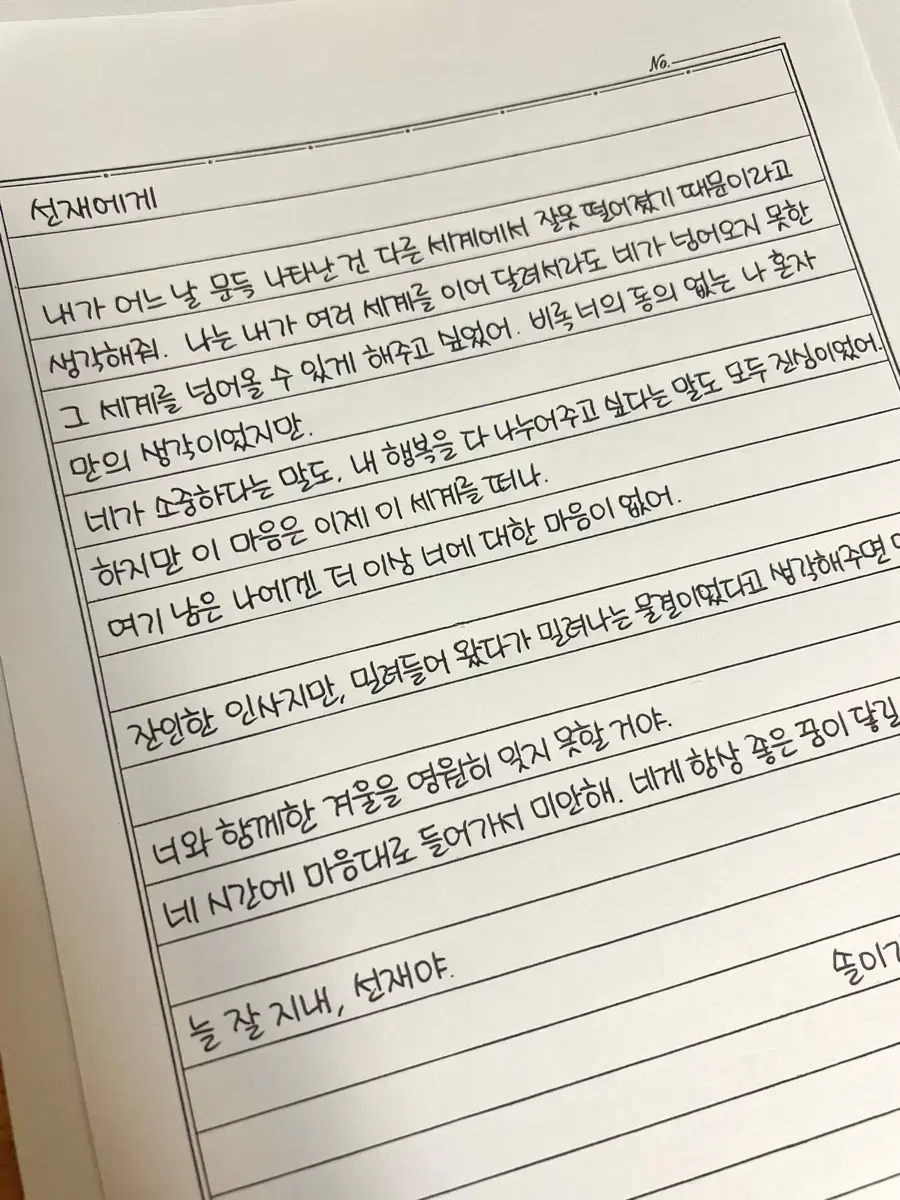 No.
선재에게
내가 어느날 문득 나타난건 다른 세계에서 잘못 떨어졌기 때문이라고
생각해줘. 나는 내가 여러 세계를 이어 달려서라도 네가 넘어오지 못한
그 세계를 넘어올 수 있게 해주고 싶었어. 비록 너의 동의 없는 나 혼자
만의 생각이었지만.
네가 소중하다는 말도, 내 행복을 다 나누어주고 싶다는 말도 모두 진심이었어.
하지만 이 마음은 이제 이 세계를 떠나.
여기 남은 나에겐 더 이상 너에 대한 마음이 없어.
잔인한 인사지만, 밀려들어 왔다가 밀려나는 물결이었다고 생각해주면
너와 함께한 겨울을 영원히 잊지 못할 거야.
네 시간에 마음대로 들어가서 미안해. 네게 항상 좋은 꿈이 닿길
늘 잘 지내, 선재야.
솔이가